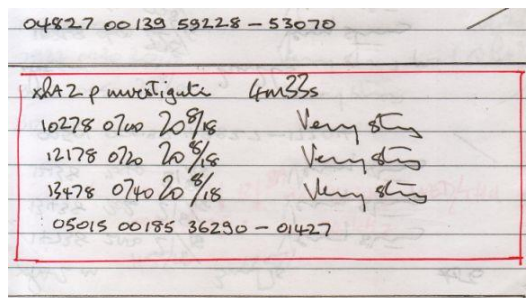 04827 00139 59228 – 53070
XPA2 p investigate 4m33s
10278 0700 20 8/18 Very
12178 0720 20 8/18 Very
13478 0740 20 8/18 Very
05015 00185 36290 – 01427